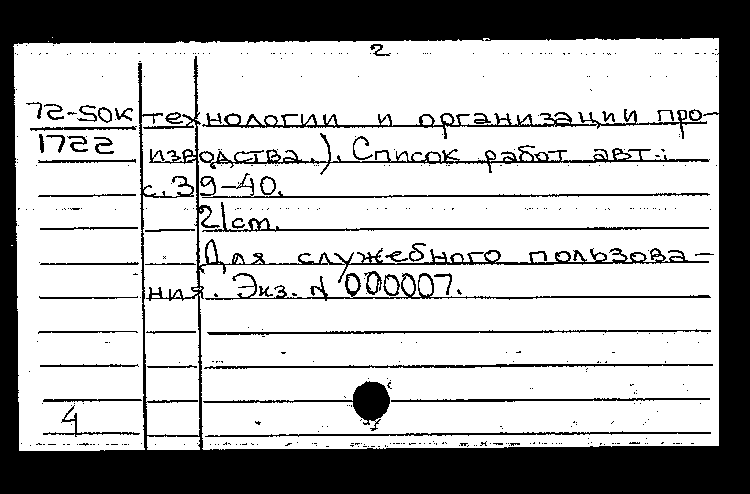 2
72-50к технологии и организации про-
1722 изводства.). Список работ авт.:
с.39-40.
21ст.
Для служебного пользова-
ния. Экз. N 000007.
4